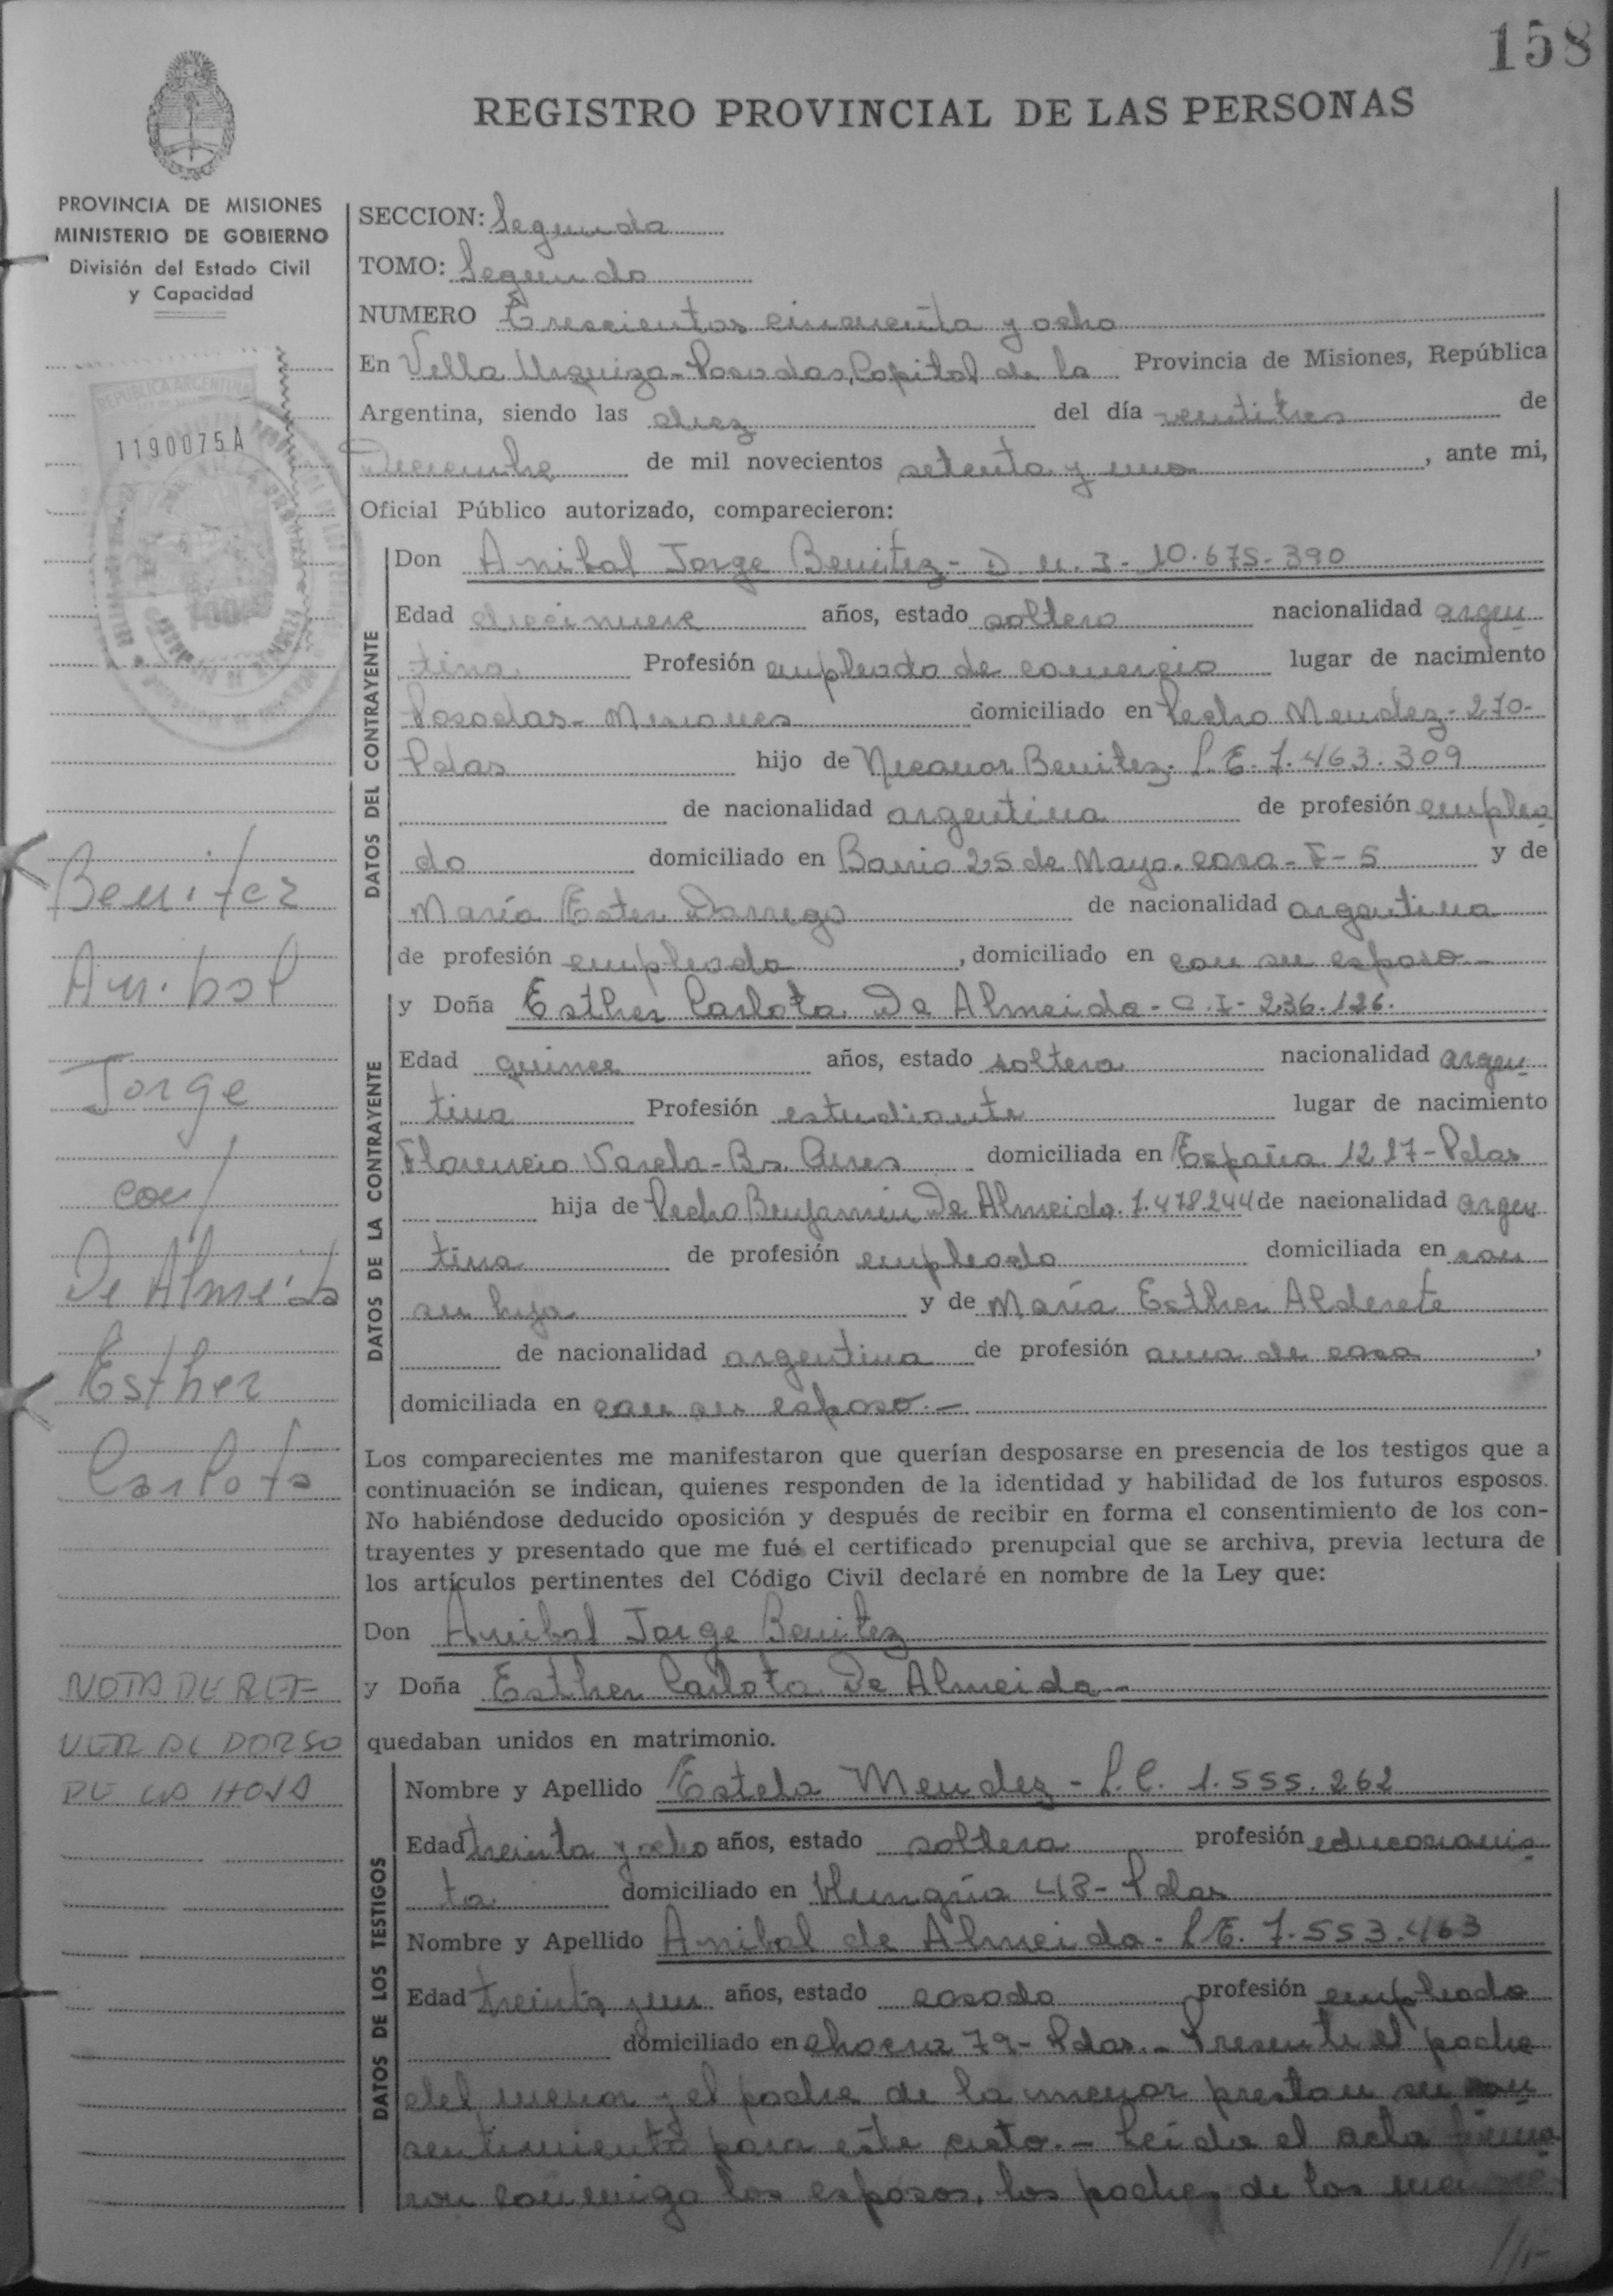 158
REGISTRO PROVINCIAL DE LAS PERSONAS
PROVINCIA DE MISIONES
MINISTERIO DE GOBIERNO
División del Estado Civil
y Capacidad
REPUBLICA ARGENTINA
1190075A
SECCION: Segunda
TOMO: Segundo
NUMERO Trescientos cincuenta y ocho
En Villa Urquiza - Posadas, Capital de la Provincia de Misiones, República
Argentina, siendo las diez del día veintitres de
Diciembre de mil novecientos setenta y uno, ante mi,
Oficial Público autorizado, comparecieron:
DATOS DEL CONTRAYENTE
Don Anibal Jorge Benitez - D.N.I - 10.675.390
Edad diecinueve años, estado soltero nacionalidad argen
tina Profesión empleado de comercio lugar de nacimiento
Posadas - Misiones domiciliado en Pedro Mendez - 270 -
Pdas hijo de Nicanor Benitez. L.E. 7.463.309
de nacionalidad argentina de profesión emplea
do domiciliado en Barrio 25 de Mayo. casa - F - 5 y de
María Ester Dorrego de nacionalidad argentina
de profesión empleada, domiciliado en con su esposo -
DATOS DE LA CONTRAYENTE
y Doña Esther Carlota De Almeida - C.I - 236.126.
Edad quince años, estado soltera nacionalidad argen
tina Profesión estudiante lugar de nacimiento
Florencio Varela - Bs. Aires domiciliada en España 1217 - Pdas
hija de Pedro Benjamin De Almeida. 7.478.244 de nacionalidad argen
tina de profesión empleado domiciliada en con
su hija y de María Esther Alderete
de nacionalidad argentina de profesión ama de casa,
domiciliada en con su esposo. -
Los comparecientes me manifestaron que querían desposarse en presencia de los testigos que a
continuación se indican, quienes responden de la identidad y habilidad de los futuros esposos.
No habiéndose deducido oposición y después de recibir en forma el consentimiento de los con-
trayentes y presentado que me fué el certificado prenupcial que se archiva, previa lectura de
los artículos pertinentes del Código Civil declaré en nombre de la Ley que:
Don Anibal Jorge Benitez
y Doña Esther Carlota De Almeida -
quedaban unidos en matrimonio.
DATOS DE LOS TESTIGOS
Nombre y Apellido Estela Mendez - L.C. 1.555.262
Edad treinta y ocho años, estado soltera profesión educacionis
ta domiciliado en Hungría 48 - Pdas
Nombre y Apellido Anibal de Almeida - L.E. 7.553.463
Edad treinta y un años, estado casado profesión empleado
domiciliado en chacra 79 - Pdas. - Presente el padre
del menor y el padre de la menor prestan su con
sentimiento para este acto. - Leída el acta firma
ron conmigo los esposos, los padres de los menores
Benitez
Anibal
Jorge
con/
De Almeida
Esther
Carlota
NOTA DE REF
VER AL DORSO
DE LA HOJA